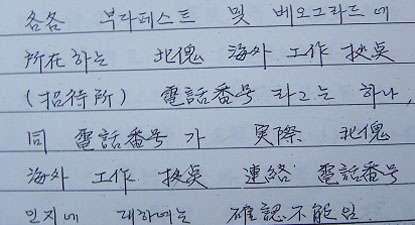 各各 부다페스트 및 베오그라드에
所在하는 北傀 海外 工作 拠点
(招待所) 電話番号 라고는 하나,
同 電話番号가 実際 北傀
海外 工作 拠点 連絡 電話番号
인지에 대하여는 確認不能임.